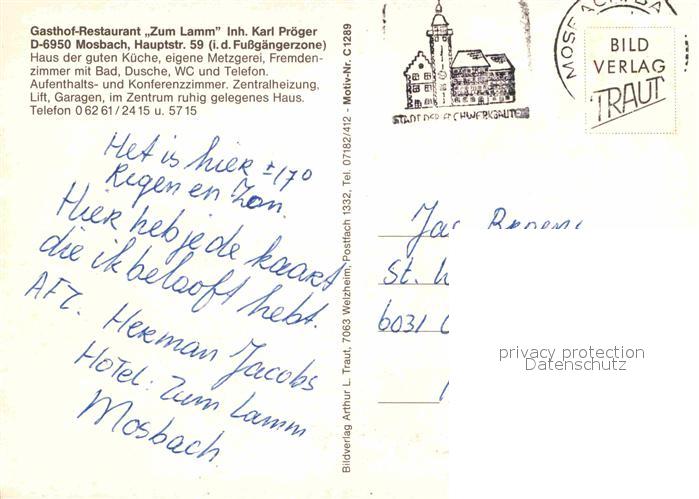 Gasthof-Restaurant „Zum Lamm" Inh. Karl Pröger
D-6950 Mosbach, Hauptstr. 59 (i. d. Fußgängerzone)
Haus der guten Küche, eigene Metzgerei, Fremden-
zimmer mit Bad, Dusche, WC und Telefon.
Aufenthalts- und Konferenzzimmer. Zentralheizung,
Lift, Garagen, im Zentrum ruhig gelegenes Haus.
Telefon 0 62 61 / 24 15 u. 57 15
Het is hier ± 17°
Regen en Zon.
Hier heb je de kaart
die ik belooft hebt.
AFZ. Herman Jacobs
Hotel: Zum Lamm
Mosbach.
Bildverlag Arthur L. Traut, 7063 Welzheim, Postfach 1332, Tel. 07182/412 - Motiv-Nr. C1289
STADT DER FACHWERKBAUTEN
MOSBACH
BILD
VERLAG
TRAUT
St.
6031
privacy protection
Datenschutz